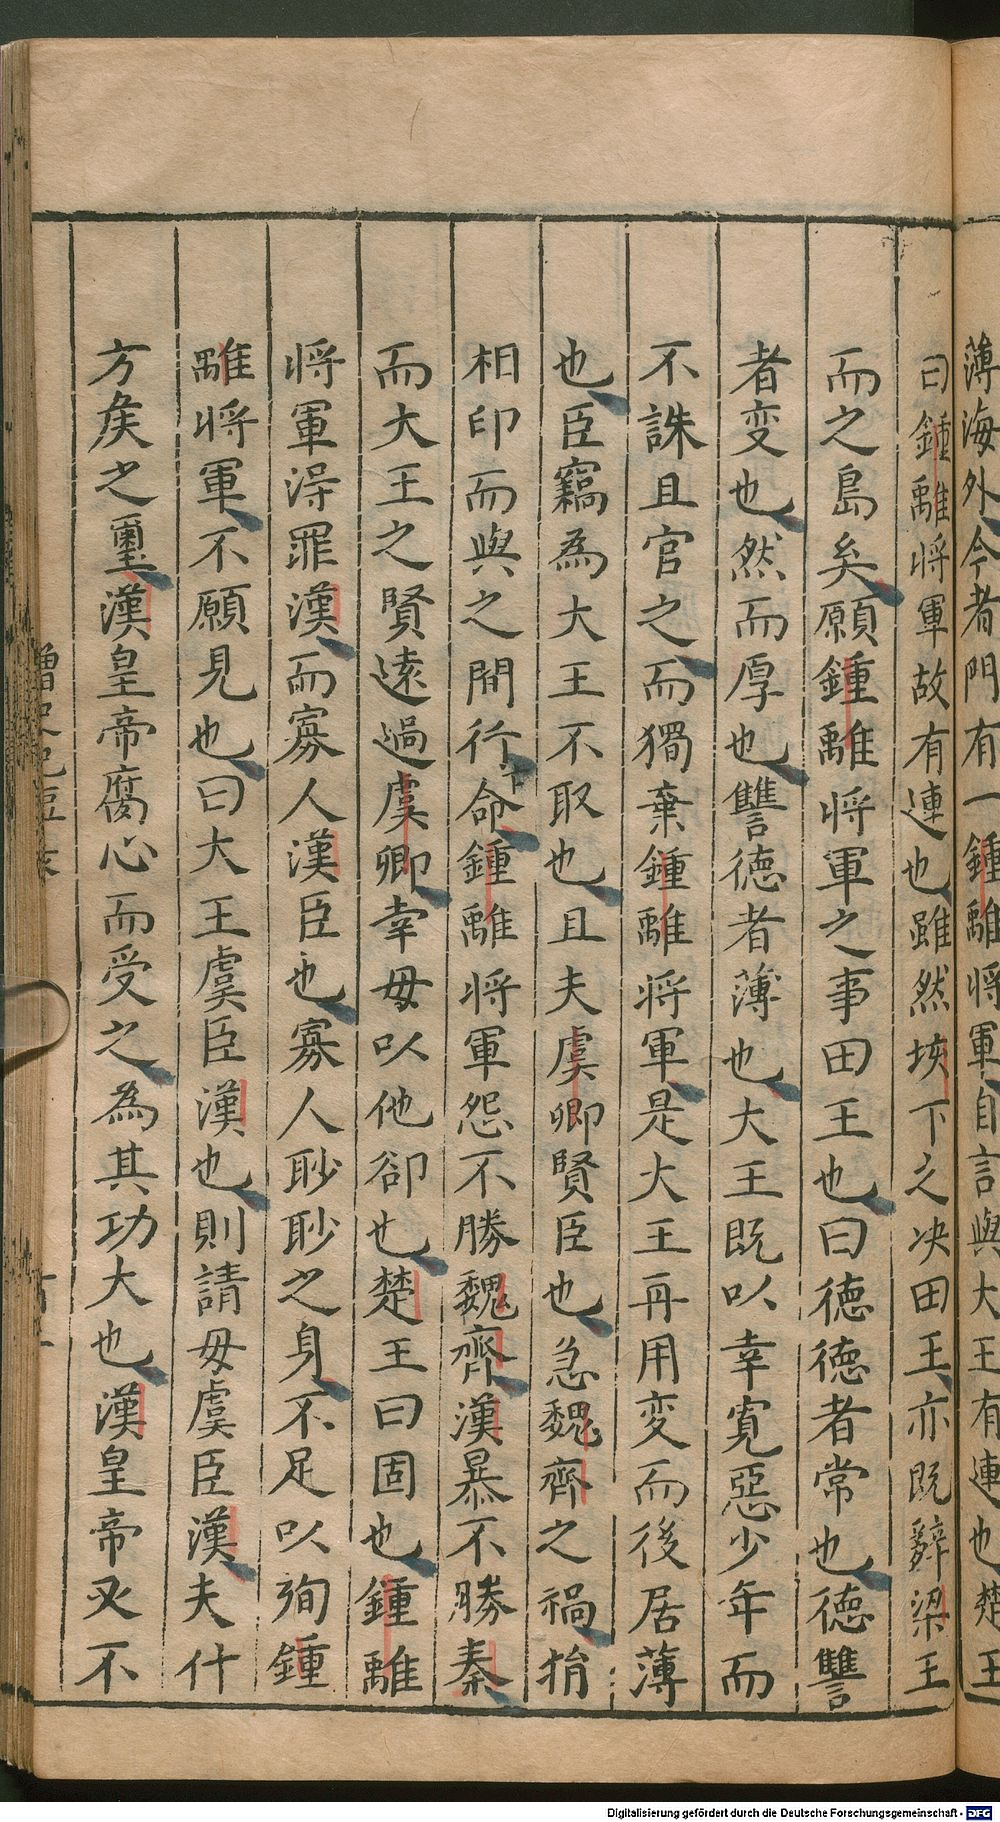 薄海外今者門有一鍾離將軍自言與大王有連也楚王
曰鍾離將軍故有連也雖然垓下之决田王亦既辭梁王
而之島矣願鍾離將軍之事田王也曰德德者常也德讐
者变也然而厚也讐德者薄也大王既以幸寛惡少年而
不誅且官之而獨棄鍾離將軍是大王再用变而後居薄
也臣竊為大王不取也且夫虞卿賢臣也急魏齊之禍捐
相印而與之間行命鍾離將軍怨不勝魏齊漢暴不勝秦
而大王之賢遠過虞卿幸毋以他卻也楚王曰固也鍾離
將軍淂罪漢而寡人漢臣也寡人眇眇之身不足以殉鍾
離將軍不願見也曰大王虞臣漢也則請毋虞臣漢夫什
方矦之璽漢皇帝腐心而受之為其功大也漢皇帝又不
Digitalisierung gefördert durch die Deutsche Forschungsgemeinschaft - DFG